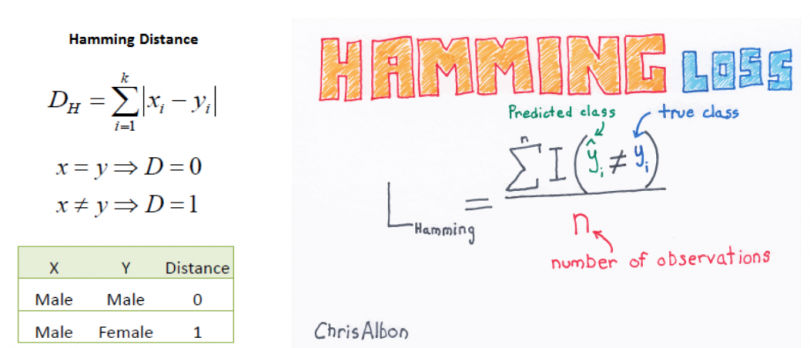 Hamming Distance
D_H = \sum_{i=1}^{k} |x_i - y_i|
x = y ⇒ D = 0
x ≠ y ⇒ D = 1
X Y Distance
Male Male 0
Male Female 1
HAMMING LOSS
Predicted class true class
L_Hamming = \frac{\sum^{n} I(\hat{y}_i ≠ y_i)}{n}
number of observations
ChrisAlbon